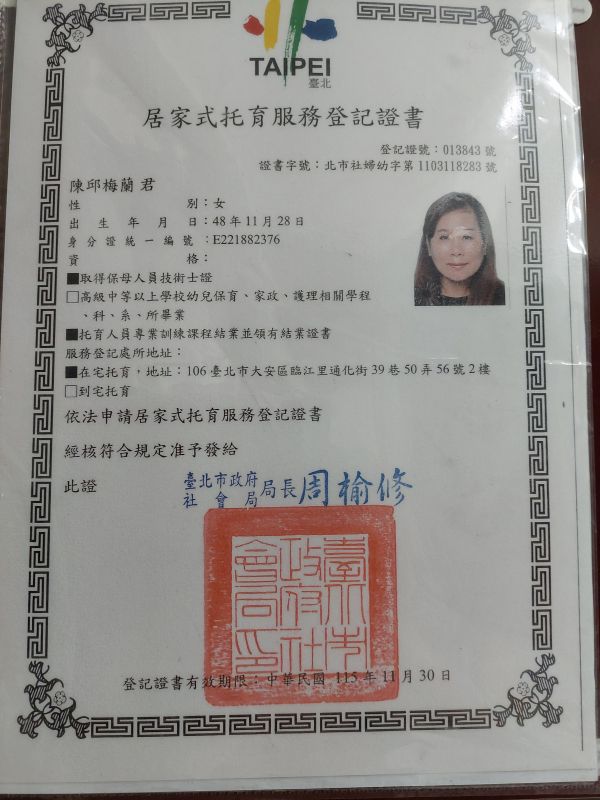 TAIPEI
臺北
居家式托育服務登記證書
登記證號：013843 號
證書字號：北市社婦幼字第 1103118283 號
陳邱梅蘭 君
性別：女
出生年月日：48 年 11 月 28 日
身分證統一編號：E221882376
資格：
■取得保母人員技術士證
□高級中等以上學校幼兒保育、家政、護理相關學程
、科、系、所畢業
■托育人員專業訓練課程結業並領有結業證書
服務登記處所地址：
■在宅托育，地址：106 臺北市大安區臨江里通化街 39 巷 50 弄 56 號 2 樓
□到宅托育
依法申請居家式托育服務登記證書
經核符合規定准予發給
此證
臺北市政府社會局局長周榆修
臺北市政府社會局印
登記證書有效期限：中華民國 115 年 11 月 30 日